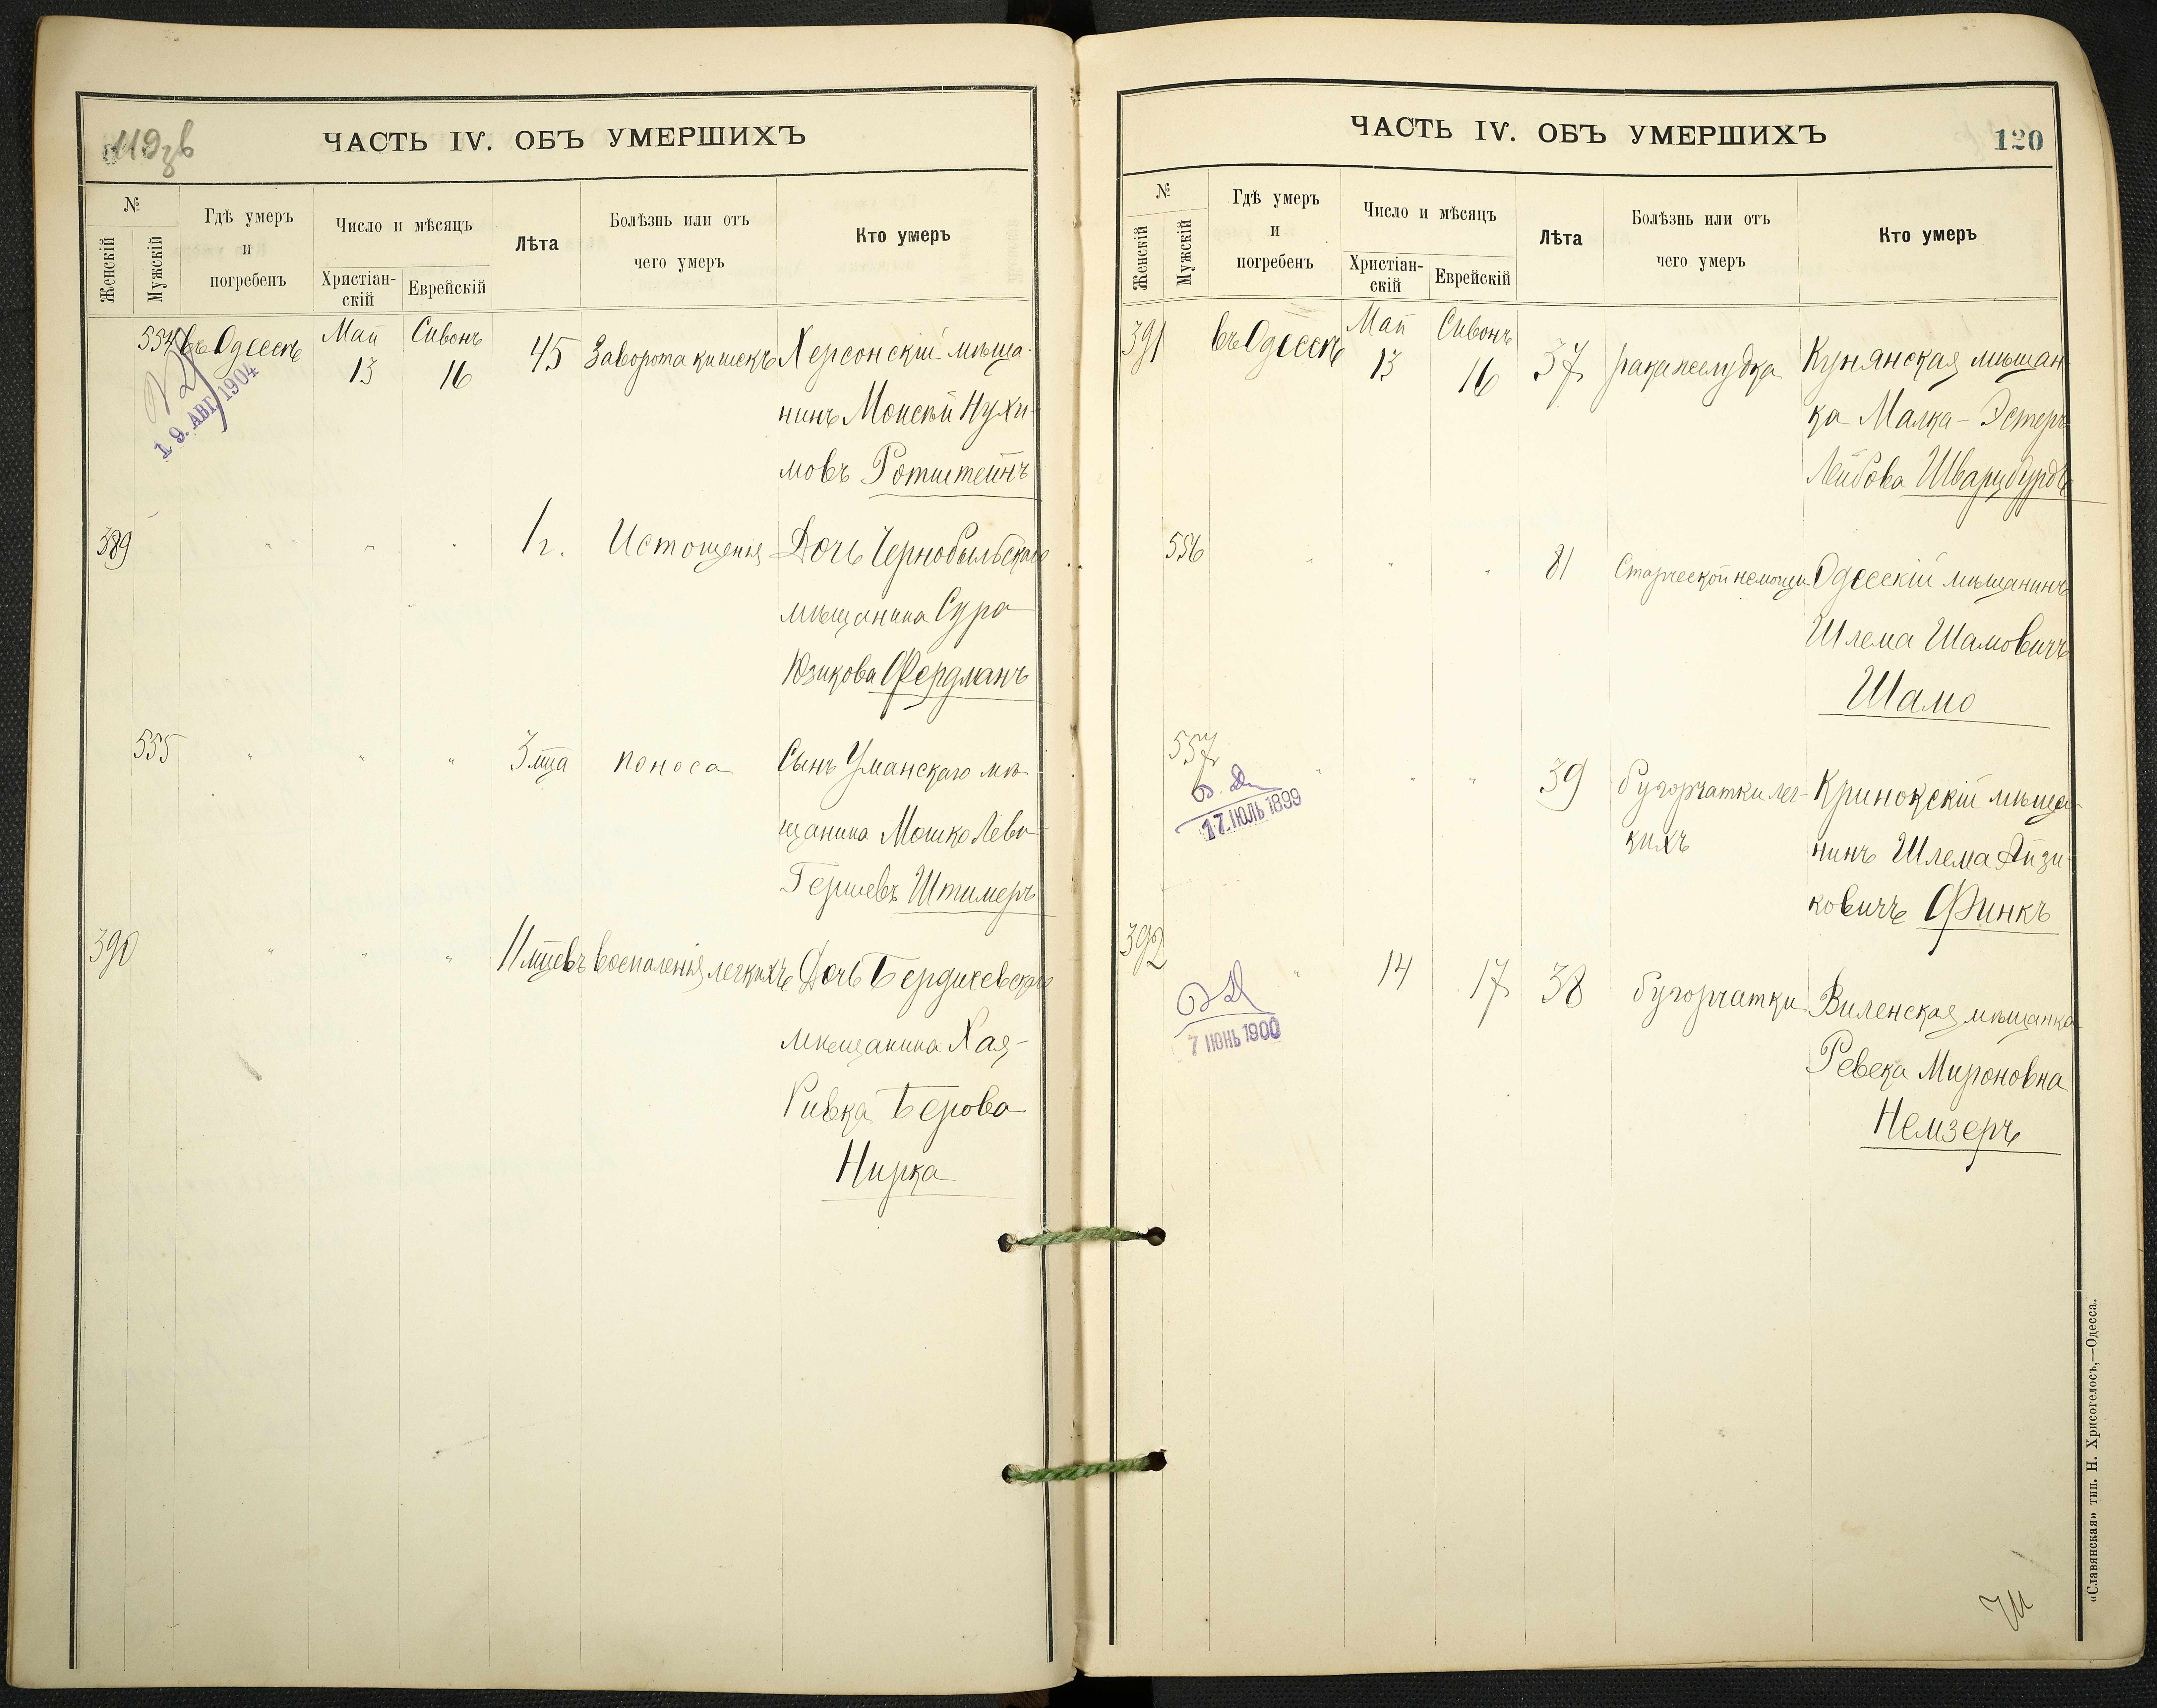 119 зв
ЧАСТЬ IV. ОБЪ УМЕРШИХЪ
№
Женскій
Мужскій
Гдѣ умеръ
и
погребенъ
Число и мѣсяцъ
Христіан-
скій
Еврейскій
Лѣта
Болѣзнь или отъ
чего умеръ
Кто умеръ
554 въ Одессѣ Май Сивонъ 45 Заворота кишекъ Херсонскій мѣща-
13 16
19. АВГ. 1904
нинъ Моисей Нухи-
мовъ Ротштейнъ
389 " " " " 1 г. Истощенія Дочь Чернобыльскаго
мѣщанина Сура
Юзикова Фердманъ
555 " " " 3 мца поноса Сынъ Уманскаго мѣ-
щанина Мошко Лейв
Гершевъ Штимеръ
390 " " " 11 мцевъ воспаленія легкихъ Дочь Бердичевскаго
мѣщанина Хая-
Ривка Берова
Нирка
ЧАСТЬ IV. ОБЪ УМЕРШИХЪ
120
№
Женскій
Мужскій
Гдѣ умеръ
и
погребенъ
Число и мѣсяцъ
Христіан-
скій
Еврейскій
Лѣта
Болѣзнь или отъ
чего умеръ
Кто умеръ
391 въ Одессѣ Май Сивонъ 37 рака желудка Кунянская мѣщан-
13 16
ка Малка-Эстеръ
Лейбова Шварцбурдъ
556 " " " 81 Старческой немощи Одесскій мѣщанинъ
Шлема Шамовичъ
Шамо
557 " " " 39 бугорчатки лег- Кринокскій мѣща-
17. ІЮЛЬ 1899
кихъ нинъ Шлема Айзи-
ковичъ Финкъ
392 " 14 17 38 бугорчатки Виленская мѣщанка
7 ІЮНЬ 1900
Ревека Мироновна
Немзеръ
«Славянская» тип. Н. Хрисогелосъ,—Одесса.